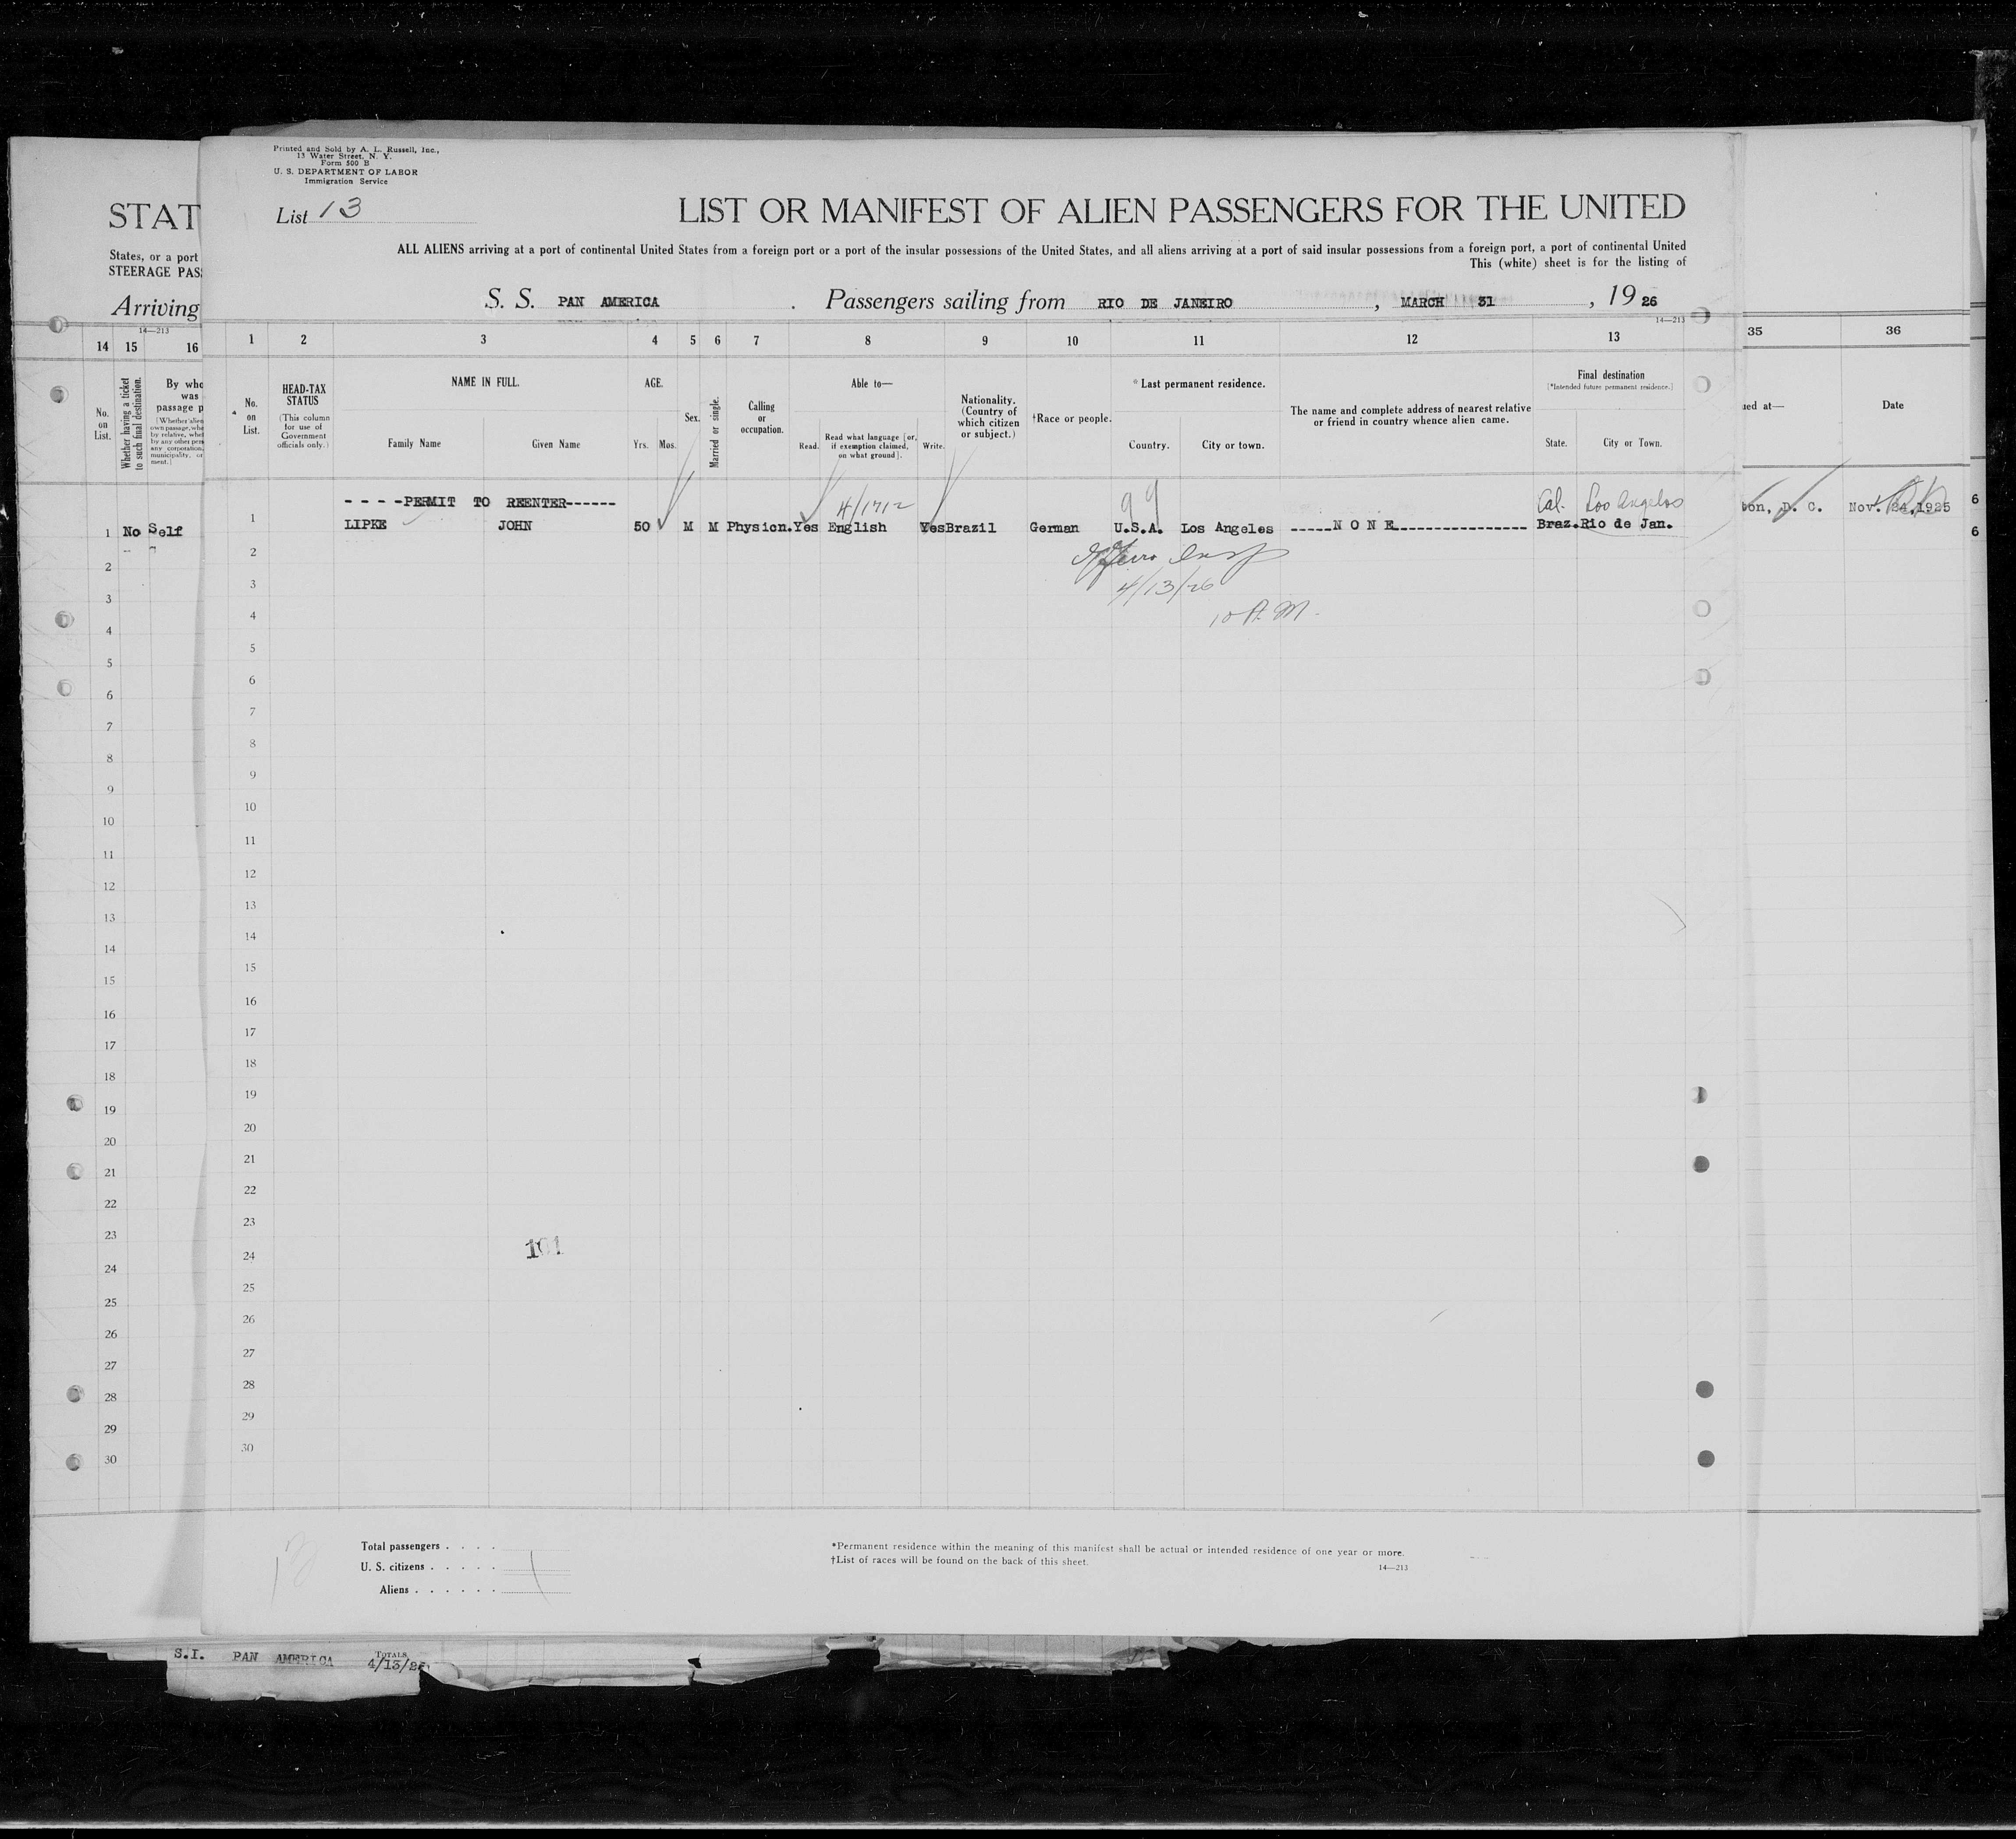 Printed and Sold by A. L. Russell, Inc.,
13 Water Street, N. Y.
Form 500 B
U. S. DEPARTMENT OF LABOR
Immigration Service
List 13
LIST OR MANIFEST OF ALIEN PASSENGERS FOR THE UNITED
STAT
ALL ALIENS arriving at a port of continental United States from a foreign port or a port of the insular possessions of the United States, and all aliens arriving at a port of said insular possessions from a foreign port, a port of continental United
This (white) sheet is for the listing of
States, or a port
STEERAGE PAS
Arriving
S. S. PAN AMERICA . Passengers sailing from RIO DE JANEIRO , MARCH 31 , 19 26
14—213
14—213
14 15 16
1 2 3 4 5 6 7 8 9 10 11 12 13
35 36
No. on List.
Whether having a ticket to such final destination.
By who
was
passage p
[Whether alien
own passage, whe
by relative, whet
by any other pers
any corporation,
municipality, or
ment.]
No. on List.
HEAD-TAX STATUS
(This column for use of Government officials only.)
NAME IN FULL.
Family Name Given Name
AGE.
Yrs. Mos.
Sex.
Married or single.
Calling or occupation.
Able to—
Read. Read what language [or, if exemption claimed, on what ground]. Write.
Nationality. (Country of which citizen or subject.)
†Race or people.
*Last permanent residence.
Country. City or town.
The name and complete address of nearest relative or friend in country whence alien came.
Final destination
[*Intended future permanent residence.]
State. City or Town.
ued at— Date
- - - -PERMIT TO REENTER------
4/1712
99
Cal. Los Angeles
1 LIPKE JOHN 50 M M Physion. Yes English Yes Brazil German U.S.A. Los Angeles -----N O N E---------------- Braz. Rio de Jan.
1 No Self
ton, D. C. Nov. 24, 1925
6
6
4/13/26
10 A.M.
2
3
4
5
6
7
8
9
10
11
12
13
14
15
16
17
18
19
20
21
22
23
24
25
26
27
28
29
30
2
3
4
5
6
7
8
9
10
11
12
13
14
15
16
17
18
19
20
21
22
23
24
25
26
27
28
29
30
101
13
Total passengers . . . .
U. S. citizens . . . . .
Aliens . . . . . .
*Permanent residence within the meaning of this manifest shall be actual or intended residence of one year or more.
†List of races will be found on the back of this sheet.
14—213
S.I. PAN AMERICA TOTALS
4/13/26